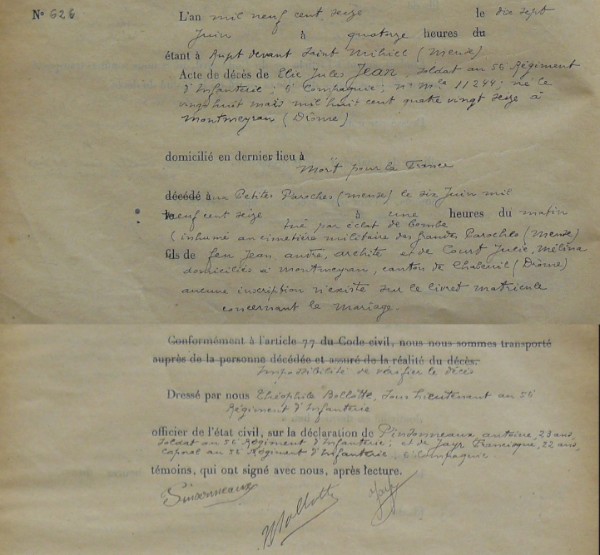 N° 626
L'an mil neuf cent seize le dix sept
Juin à quatorze heures du
étant à Rupt devant Saint Mihiel (Meuse)
Acte de décès de Elie Jules Jean, soldat au 52 Régiment
d'Infanterie; 6e Compagnie; n° Mle 11244; né le
vingt huit mars mil huit cent quatre vingt seize à
Montmeyran (Drôme)
domicilié en dernier lieu à
Mort pour la France
décédé aux Petites Paroches (Meuse) le six Juin mil
neuf cent seize à une heures du matin
tué par éclat de bombe
(inhumé au cimetière militaire des grandes Paroches (Meuse)
fils de feu Jean andré, archite et de Court Julie, Mélina
domiciliés à Montmeyran, canton de Chabeuil (Drôme)
aucune inscription n'existe sur le livret matricule
concernant le mariage.
Conformément à l'article 77 du Code civil, nous nous sommes transporté
auprès de la personne décédée et assuré de la réalité du décès.
Impossibilité de vérifier le décès
Dressé par nous Théophile Bollotte, Sous Lieutenant au 52
Régiment d'Infanterie
officier de l'état civil, sur la déclaration de antoine, 23 ans,
soldat au 52 Régiment d'Infanterie; et de Jayr Françisque, 22 ans,
caporal au 52 Régiment d'Infanterie, 6e Compagnie.
témoins, qui ont signé avec nous, après lecture.
Bollotte